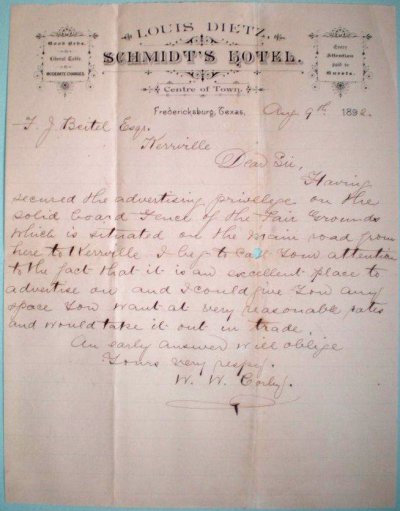 LOUIS DIETZ,
SCHMIDT'S HOTEL.
Good Beds.
Liberal Table
MODERATE CHARGES.
Every
Attention
paid to
Guests.
Centre of Town.
Fredericksburg, Texas, Aug 9th 1892.
F. J. Beitel Esqr.
Kerrville
Dear Sir,
Having
secured the advertising privilege on the
solid board Fence of the Fair Grounds
which is situated on the main road from
here to Kerrville I beg to call your attention
to the fact that it is an excellent place to
advertise on, and I could give you any
space you want at very reasonable rates
and would take it out in trade.
An early answer will oblige
Yours very respy.
W. W.